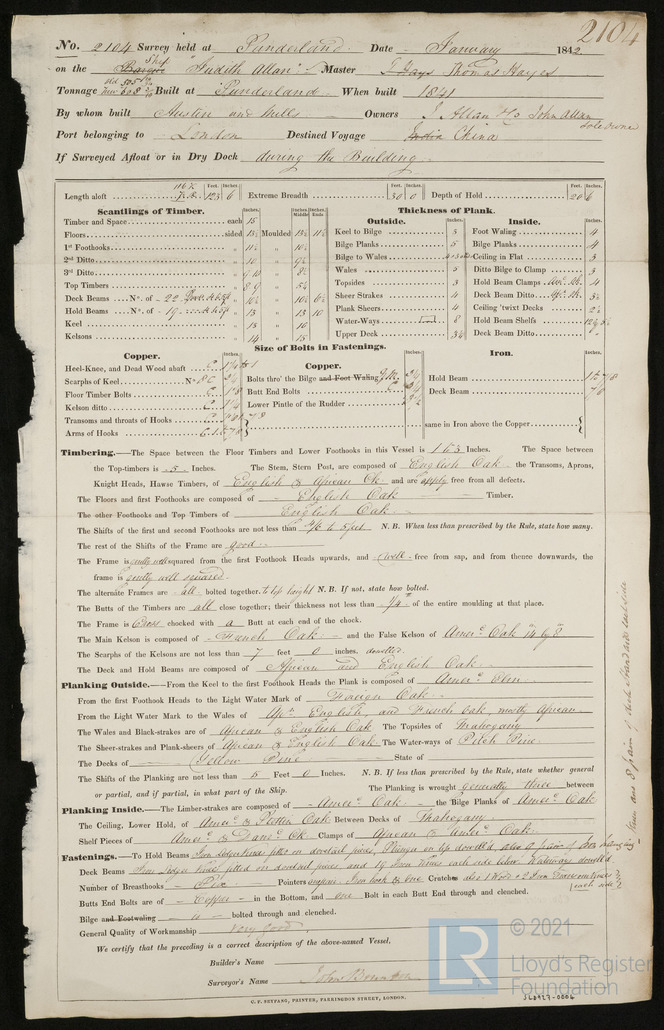 2104
No. 2104 Survey held at Sunderland Date January 1842
on the Barque Ship "Judith Allan" Master T Hays Thomas Hayes
Tonnage Old 505 New 608 Built at Sunderland When built 1841
By whom built Austin and Mills Owners J Allan John Allan
Sole Owner
Port belonging to London Destined Voyage India China
If Surveyed Afloat or in Dry Dock during the Building
Length aloft Feet. Inches. 123 6 Extreme Breadth Feet. Inches. 30 0 Depth of Hold Feet. Inches. 20 6
Scantlings of Timber. Inches. Inches Middle Inches Ends
Timber and Space each 15
Floors sided 13½ Moulded 13½ 11½
1st Foothooks " 11½ " 10½
2nd Ditto " 10 " 9½
3rd Ditto " 9 10 " 8½
Top Timbers " 8 9 " 5½
Deck Beams No. of 22 " 10½ " 10½ 6½
Hold Beams No. of 19 " 13 " 13 10
Keel " 13 " 16
Kelsons " 14 " 15
Thickness of Plank.
Outside. Inches.
Keel to Bilge 3
Bilge Planks 5
Bilge to Wales
Wales 5
Topsides 3
Sheer Strakes 4
Plank Sheers 4
Water-Ways 8
Upper Deck 3½
Inside. Inches.
Foot Waling 4
Bilge Planks 4
Ceiling in Flat 3
Ditto Bilge to Clamp 3
Hold Beam Clamps 4
Deck Beam Ditto 3½
Ceiling 'twixt Decks 2½
Hold Beam Shelfs
Deck Beam Ditto
Size of Bolts in Fastenings.
Copper. Inches.
Heel-Knee, and Dead Wood abaft C 1¼ to 1
Scarphs of Keel No. 8 C
Floor Timber Bolts C 1⅛
Kelson ditto C 1¼
Transoms and throats of Hooks C
Arms of Hooks
Copper. Inches.
Bolts thro' the Bilge and Foot Waling
Butt End Bolts
Lower Pintle of the Rudder
Iron. Inches.
Hold Beam
Deck Beam
same in Iron above the Copper
Timbering.—The Space between the Floor Timbers and Lower Foothooks in this Vessel is 1 to 3 Inches. The Space between
the Top-timbers is 5 Inches. The Stem, Stern Post, are composed of English Oak the Transoms, Aprons,
Knight Heads, Hawse Timbers, of English & African Ok and are apply free from all defects.
The Floors and first Foothooks are composed of English Oak Timber.
The other Foothooks and Top Timbers of English Oak
The Shifts of the first and second Foothooks are not less than 4/6 to 5 feet N. B. When less than prescribed by the Rule, state how many.
The rest of the Shifts of the Frame are good
The Frame is pretty well squared from the first Foothook Heads upwards, and well free from sap, and from thence downwards, the
frame is pretty well squared
The alternate Frames are all bolted together to top height N. B. If not, state how bolted.
The Butts of the Timbers are all close together; their thickness not less than ¼ of the entire moulding at that place.
The Frame is Cross chocked with a Butt at each end of the chock.
The Main Kelson is composed of French Oak and the False Kelson of Amern Oak 14 by 8
The Scarphs of the Kelsons are not less than 7 feet 0 inches. dowelled
The Deck and Hold Beams are composed of African and English Oak
Planking Outside.—From the Keel to the first Foothook Heads the Plank is composed of Amern Elm
From the first Foothook Heads to the Light Water Mark of Foreign Oak
From the Light Water Mark to the Wales of Afn English and French Oak, mostly African
The Wales and Black-strakes are of African & English Oak The Topsides of Mahogany
The Sheer-strakes and Plank-sheers of African & English Oak The Water-ways of Pitch Pine
The Decks of Yellow Pine State of
The Shifts of the Planking are not less than 5 Feet 0 Inches. N. B. If less than prescribed by the Rule, state whether general
or partial, and if partial, in what part of the Ship. The Planking is wrought generally three between
Planking Inside.—The Limber-strakes are composed of Amern Oak the Bilge Planks of Amern Oak
The Ceiling, Lower Hold, of Amern & Stettin Oak Between Decks of Mahogany
Shelf Pieces of Amern & Danc Ok Clamps of African & Amern Oak
Fastenings.—To Hold Beams Iron Lodging Knees fitted in dovetail pieces,
Deck Beams Iron Lodger Knees fitted in dovetail pieces and 19 Iron Knees each side below Waterways dowelled
Number of Breasthooks Six Pointers Iron hook & one Crutches
Butts End Bolts are of Copper in the Bottom, and one Bolt in each Butt End through and clenched.
Bilge and Footwaling bolted through and clenched.
General Quality of Workmanship Very good
We certify that the preceding is a correct description of the above-named Vessel.
Builder's Name
Surveyor's Name John Brunton
C. F. SEYFANG, PRINTER, FARRINGDON STREET, LONDON.
LR
© 2021
Lloyd's Register
Foundation